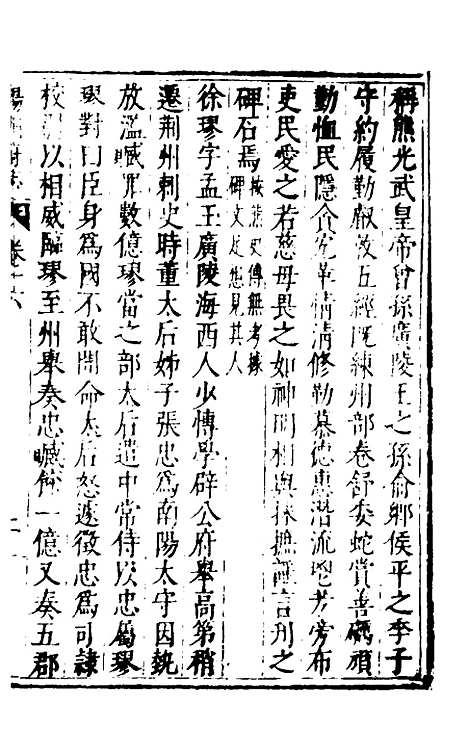 稱熊光武皇帝曾孫廣陵王之孫俞鄉侯平之季子
守約履勤叡敦五經旣練州部卷舒委蛇賞善碼頑
勤恤民隱貪宄革情清修勒慕德惠潜流鬯芳旁布
吏民愛之若慈母畏之如神明相與採摭謹言刋之
碑石焉按熊史傳無考據碑文足想見其人
徐璆字孟玉廣陵海西人少博學辟公府舉高第稍
遷荆州刺史時董太后姊子張忠爲南陽太守因埶
放濫贓罪數億璆當之部太后遣中常侍以忠屬璆
璆對曰臣身爲國不敢聞命太后怒遽徵忠爲司隷
校尉以相威臨璆至州舉奏忠贓餘一億又奏五郡
卷十六